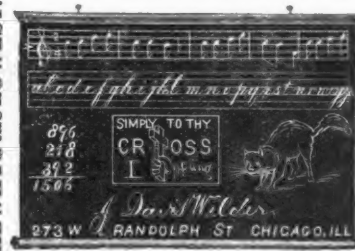 abcdefghijklmnopqrstuvwxyz
896
218
392
1506
SIMPLY TO THY
CROSS
I
J. Davis Wilder
273 W. RANDOLPH ST CHICAGO, ILL